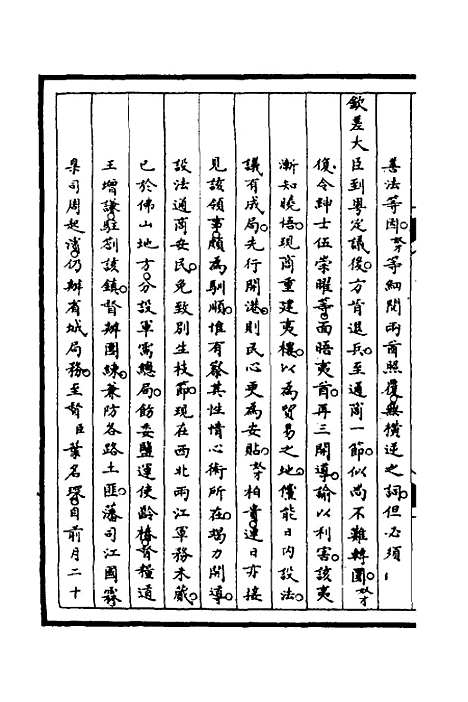 善法等因。奴才等細閱兩酋照覆。無橫逆之詞。但必須
欽差大臣到粵定議後。方肯退兵。至通商一節。似尚不難轉圜。奴才
復令紳士伍崇曜等。面晤夷酋。再三開導。諭以利害。該夷
漸知曉悟。現商重建夷樓。以為貿易之地。儻能日內設法。
議有成局。先行開港。則民心更為安貼。奴才柏貴。連日亦接
見該領事。頗為馴順。惟有察其性情心術所在。竭力開導。
設法通商安民。免致別生枝節。現在西北兩江軍務未蕆。
已於佛山地方。分設軍需總局。飭委鹽運使齡椿。督糧道
王增謙。駐劄該鎮。督辦團練。兼防各路土匪。藩司江國霖
臬司周起濱。仍辦省城局務。至督臣葉名琛。自前月二十